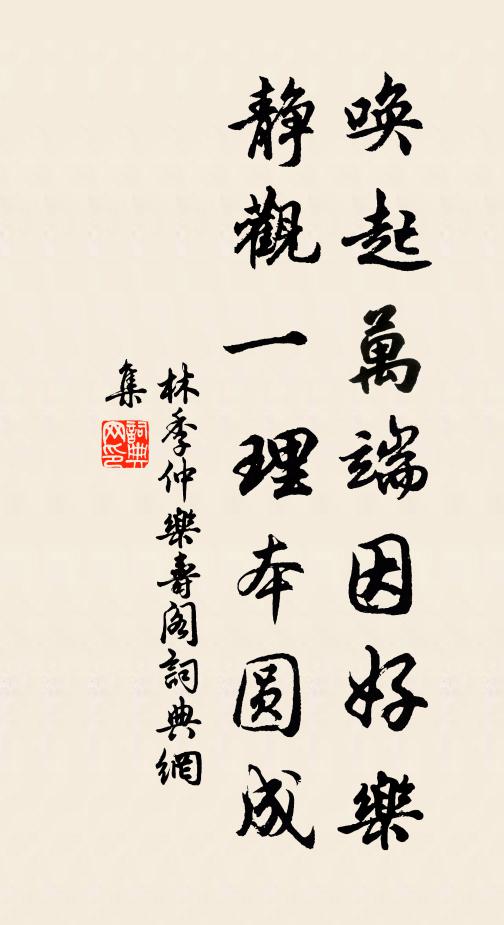 喚起萬端因好樂
静觀一理本圆成
林季仲樂壽阁詞典網
集
詞典网印